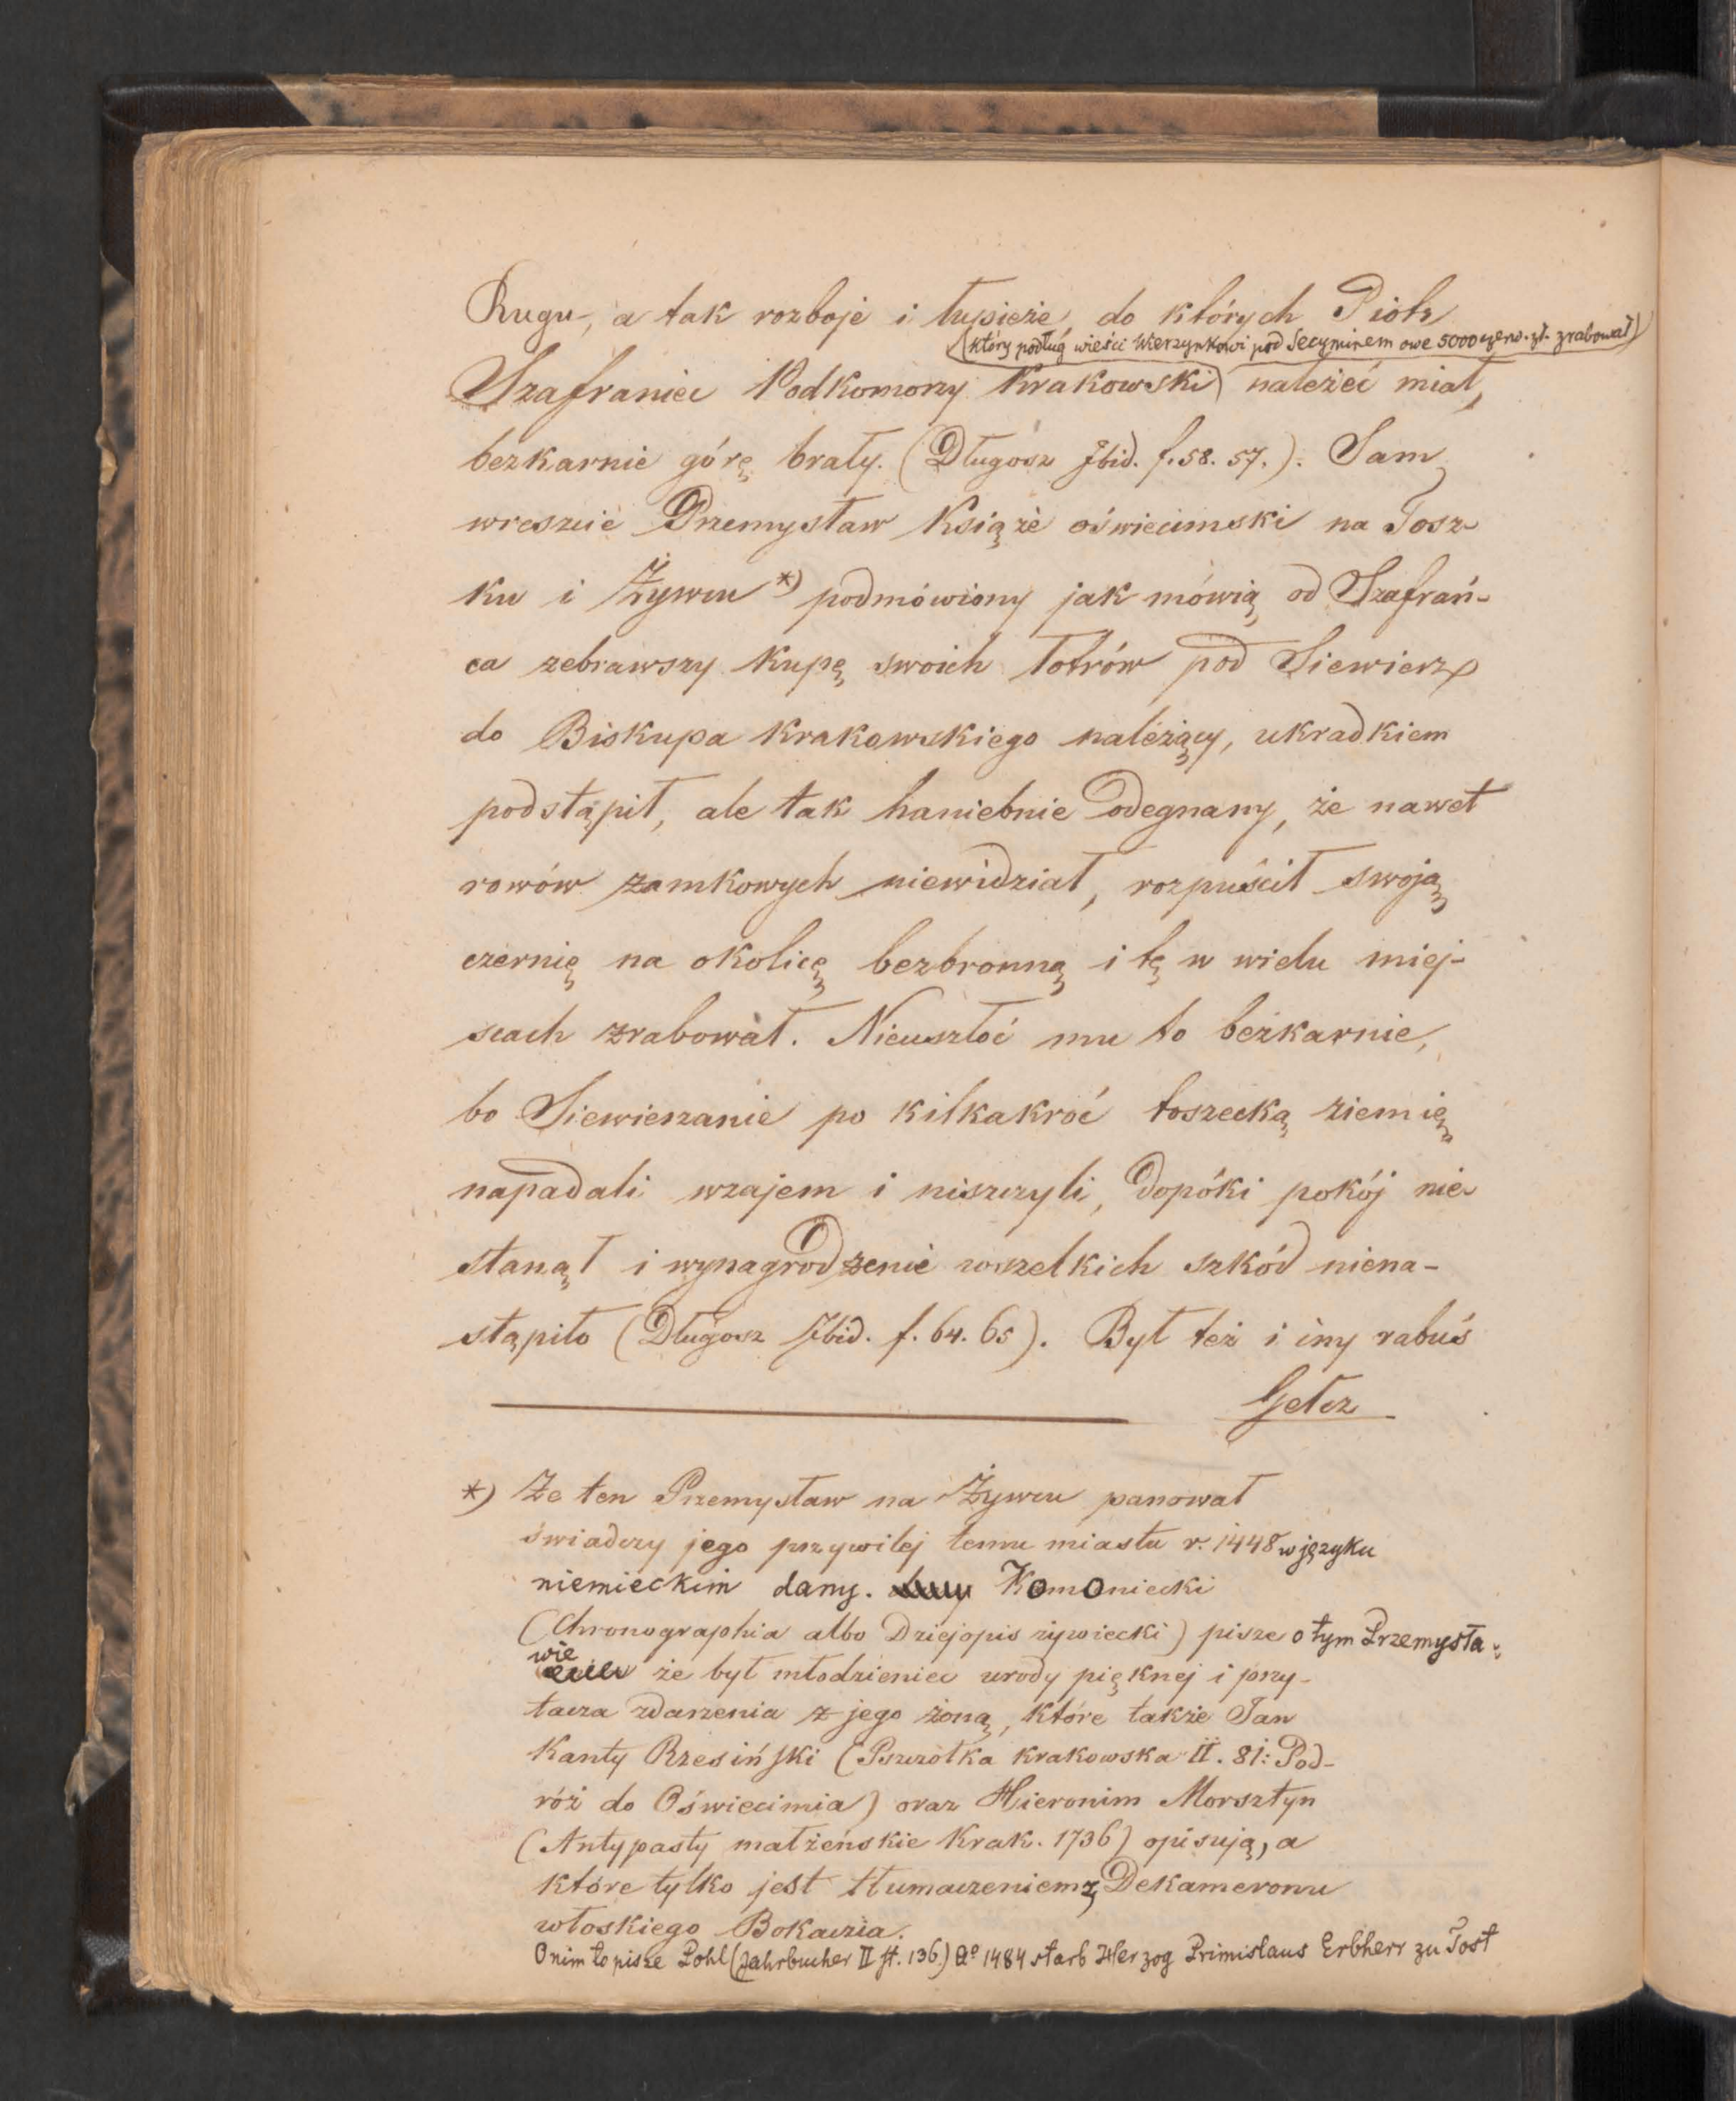 Rugu, a tak rozboje i łupieże, do których Piotr
(który podług wieści Wierzynkowi pod Secyminem owe 5000 czerw. zł. zrabował)
Szafraniec Podkomorzy Krakowski należeć miał,
bezkarnie górę brały. (Długosz Ibid. f. 58. 57.). Sam
wreszcie Przemysław Książe oświecimski na Tosz-
ku i Żywcu *) podmówiony jak mówią od Szafrań-
ca zebrawszy kupę swoich łotrów pod Siewierz
do Biskupa krakowskiego należący, ukradkiem
podstąpił, ale tak haniebnie odegnany, że nawet
rowów zamkowych niewidział, rozpuścił swoją
czernię na okolicę bezbronną i tę w wielu miej-
scach zrabował. Nieuszłoć mu to bezkarnie,
bo Siewierzanie po kilkakroć toszecką ziemię
napadali wzajem i niszczyli, dopóki pokój nie
stanął i wynagrodzenie wszelkich szkód niena-
stąpiło (Długosz Ibid. f. 64. 65). Był też i iny rabuś
Gełcz
*) Że ten Przemysław na Żywcu panował
świadczy jego przywilej temu miastu r. 1448 w języku
niemieckim dany. Komoniecki
(Chronographia albo Dziejopis żywiecki) pisze o tym Przemysła-
wie że był młodzieniec urody pięknej i przy-
tacza zdarzenia z jego żoną, które także Jan
Kanty Rzesiński (Pszczółka krakowska II. 81: Pod-
róż do Oświecimia) oraz Hieronim Morsztyn
(Antypasty małżeńskie Krak. 1736) opisują, a
które tylko jest tłumaczeniem z Dekameronu
włoskiego Bokaczia.
O nim to pisze Pohl (Jahrbucher II st. 136.) Aº 1484 starb Herzog Primislaus Erbherr zu Tost